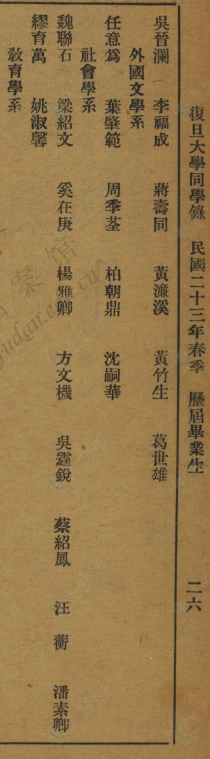 復旦大學同學錄 民國二十三年春季 歷屆畢業生 二六
吳晉瀾 李福成 蔣壽同 黃濂溪 黃竹生 葛世雄
外國文學系
任意爲 葉肇範 周季荃 柏朝鼎 沈嗣華
社會學系
魏聯石 梁紹文 奚在庚 楊雅卿 方文機 吳霆銳 蔡紹鳳 汪衡 潘素卿
繆育萬 姚淑馨
敎育學系